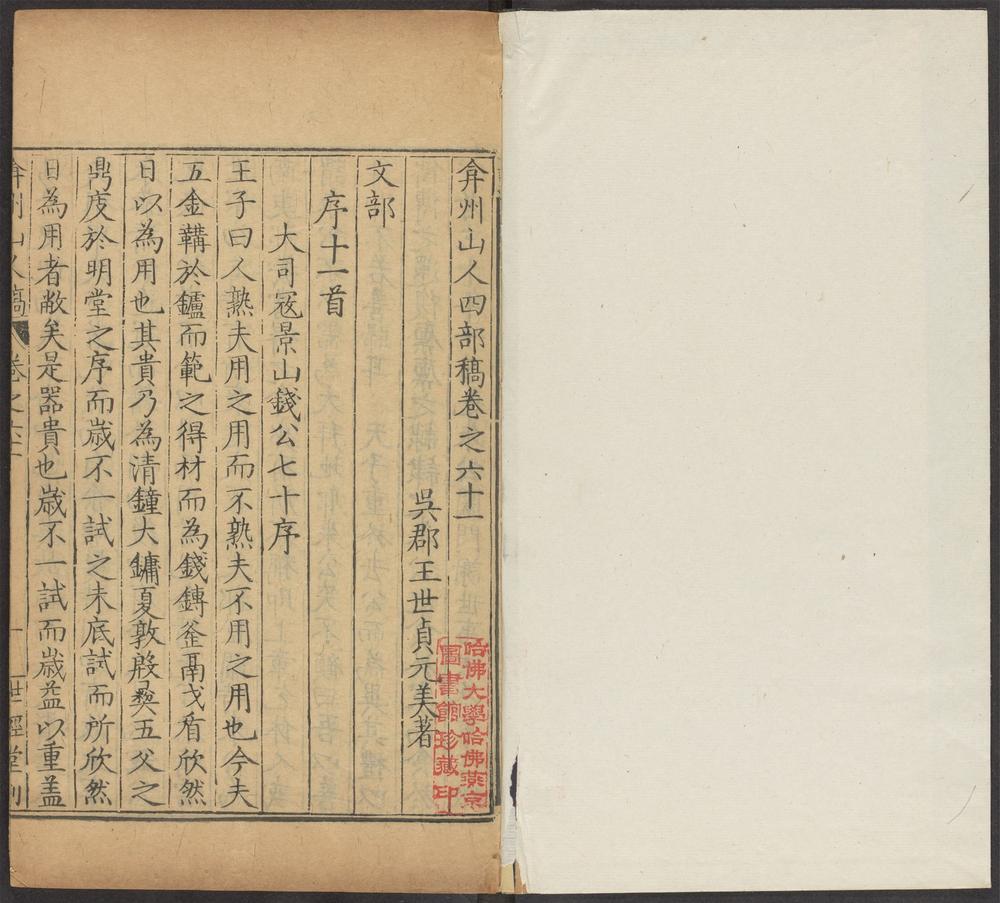 弇州山人四部稿卷之六十一
吳郡王世貞元美著
文部
序十一首
大司寇景山錢公七十序
王子曰人熟夫用之用而不熟夫不用之用也今夫
五金鞲於鑪而範之得材而為錢鎛釜鬲戈盾欣然
日以為用也其貴乃為清鐘大鏞夏敦殷彜五父之
鼎庋於明堂之序而歲不一試之未底試而所欣然
日為用者敝矣是器貴也歲不一試而歲益以重盖
弇州山人稿 卷之六十一 一 世經堂刻
哈佛大學哈佛燕京
圖書館珍藏印